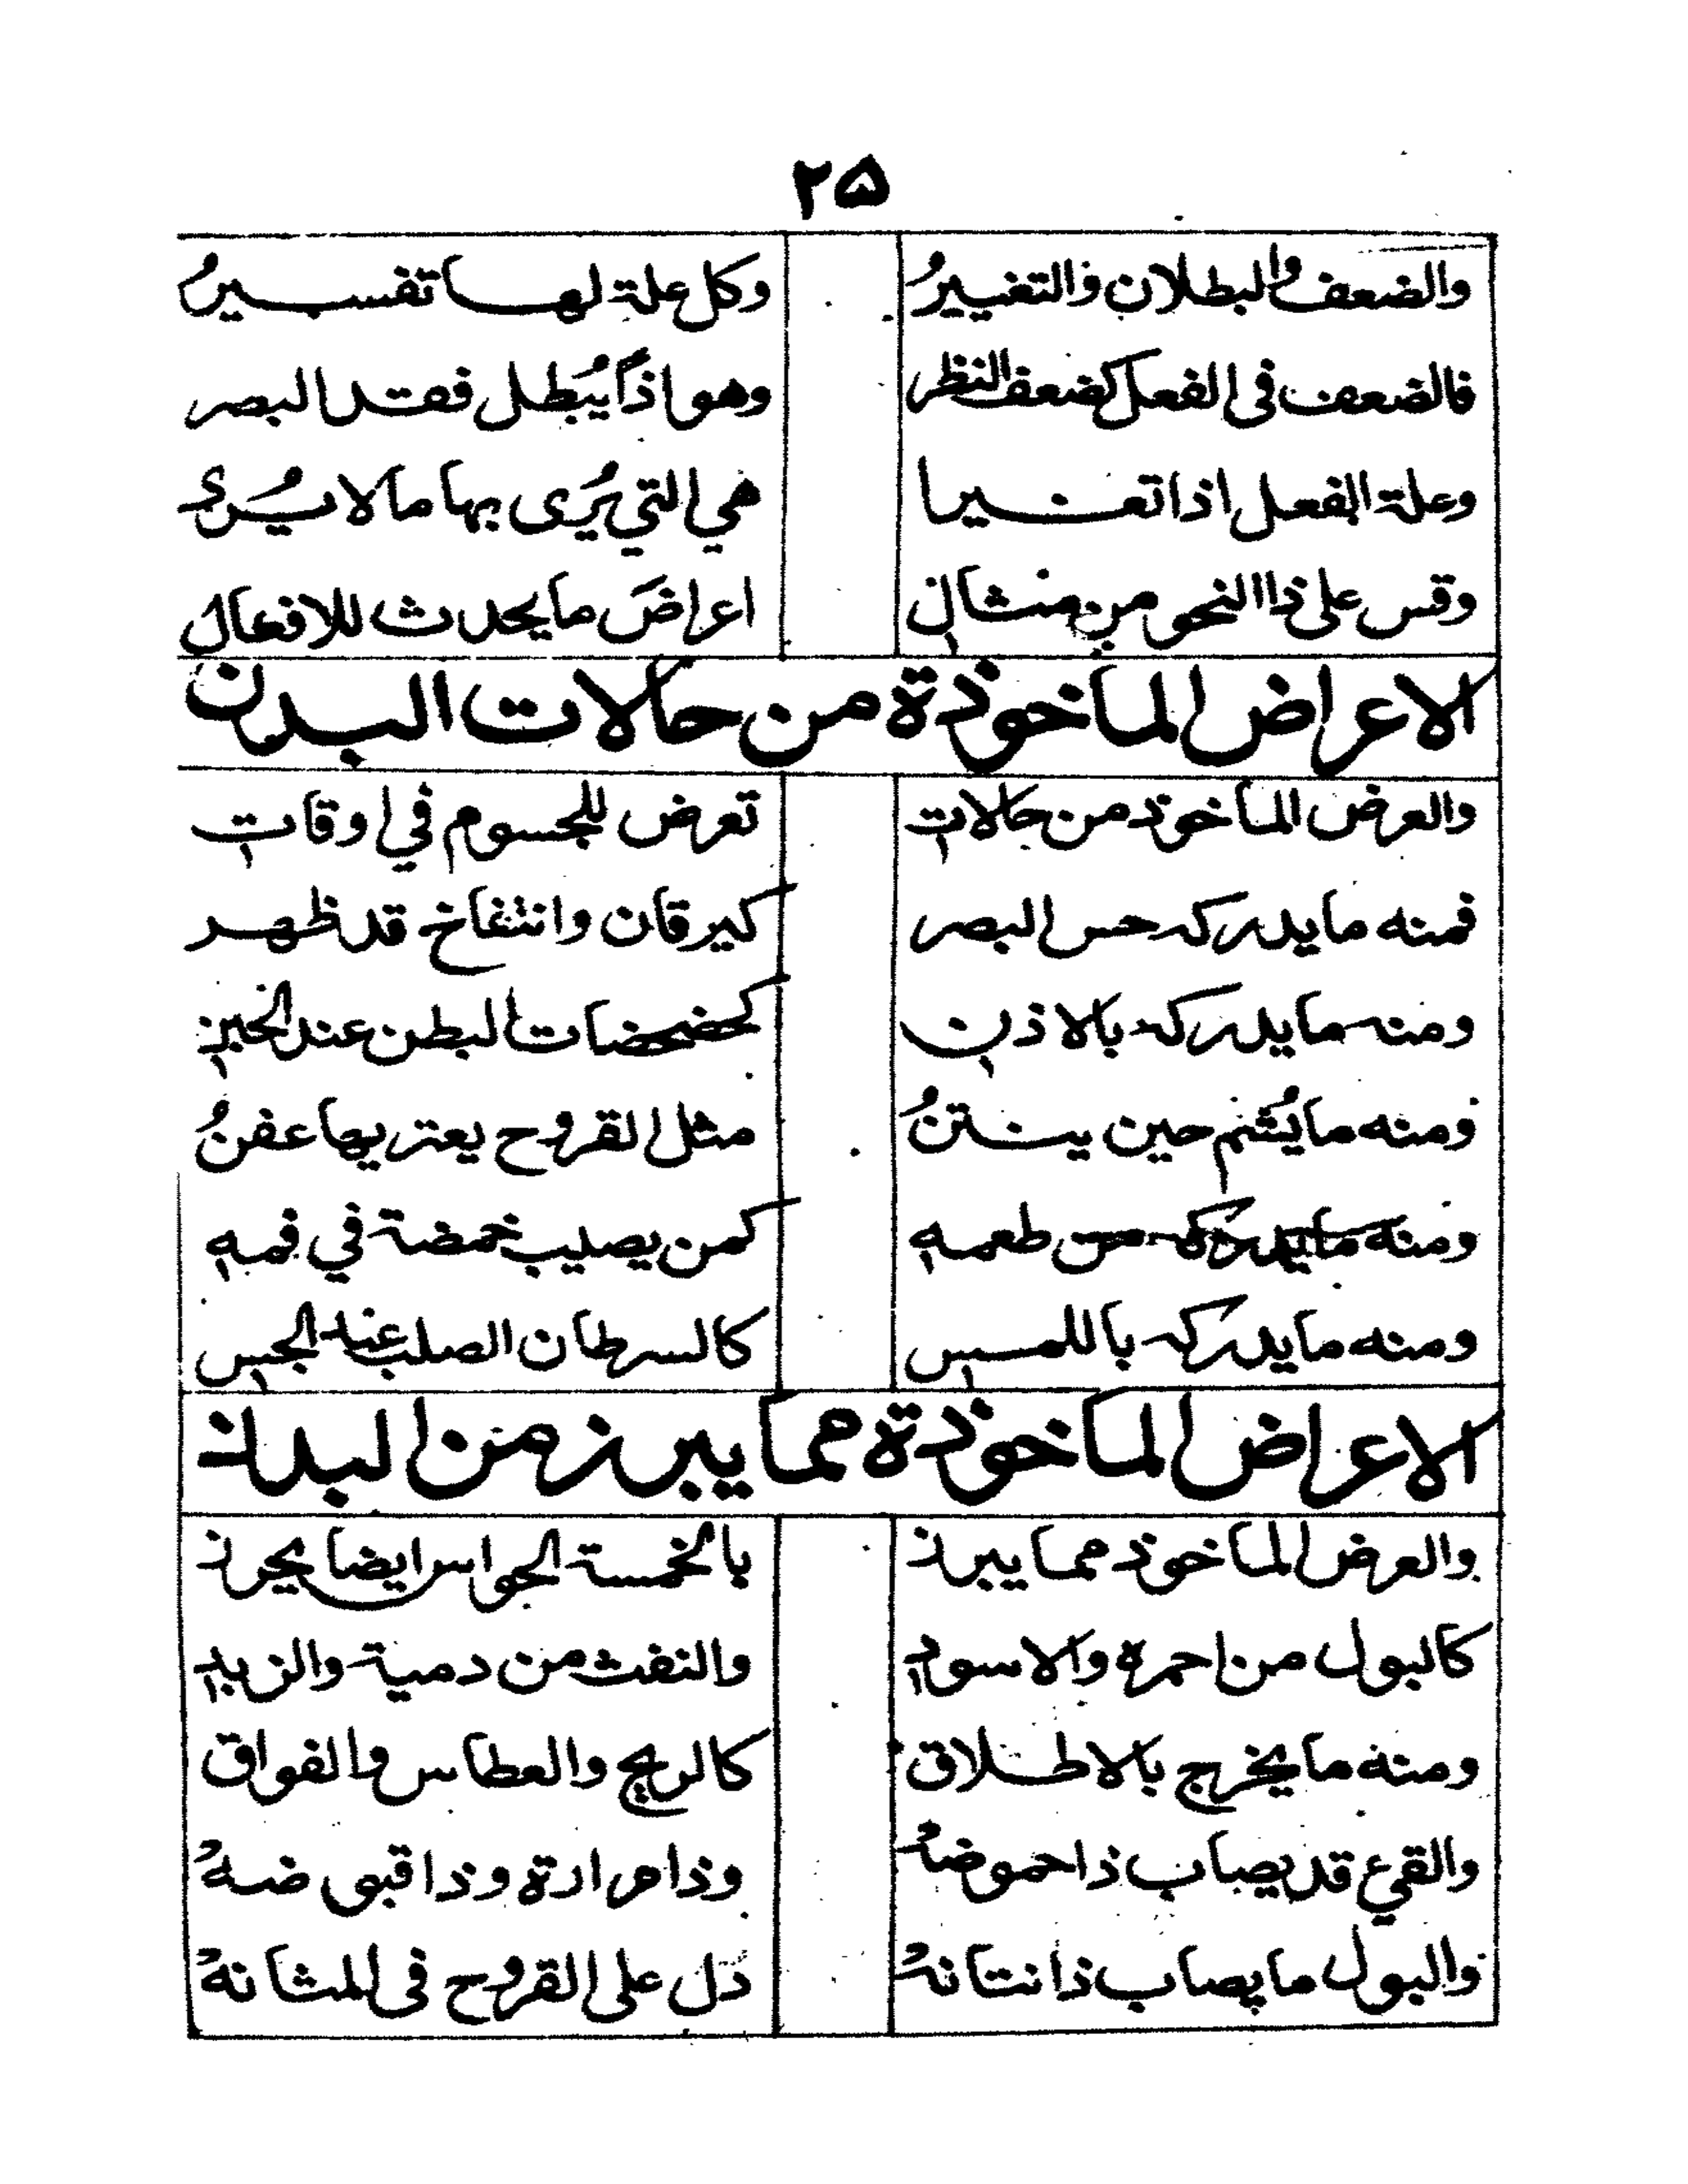 ۲۵
والضعف والبطلان والتغييرُ وكل علة لها تفسيرُ
فالضعف فى الفعل كضعف النظر وهو اذاً يُبطل فقد البصر
وعلة الفعل اذا تغيرا هي التي يُرى بها مالا يُرى
وقس على ذا النحو من مثال اعراضَ مايحدث للافعال
الاعراض الماخوذة من حالات البدن
والعرض الماخوذ من حالات تعرض للجسوم في اوقات
فمنه مايدركه حس البصر كيرقان وانتفاخ قد ظهر
ومنه مايدركه بالاذن كخضخضات البطن عند الحبن
ومنه مايُشم حين ينتنُ مثل القروح يعتريها عفنُ
ومنه مايدركه من طعمه كمن يصيب حمضة في فمه
ومنه مايدركه باللمس كالسرطان الصلب عند الجس
الاعراض الماخوذة مما يبرز من البدن
والعرض الماخوذ مما يبرز بالخمسة الحواس ايضا يحرز
كالبول من احمره والاسود والنفث من دمية والزبد
ومنه مايخرج بالاطلاق كالريح والعطاس والفواق
والقيء قد يصاب ذا حموضهُ وذا مرارة وذا قبوضهُ
والبول مايصاب ذا نتانهُ دل على القروح فى المثانهُ